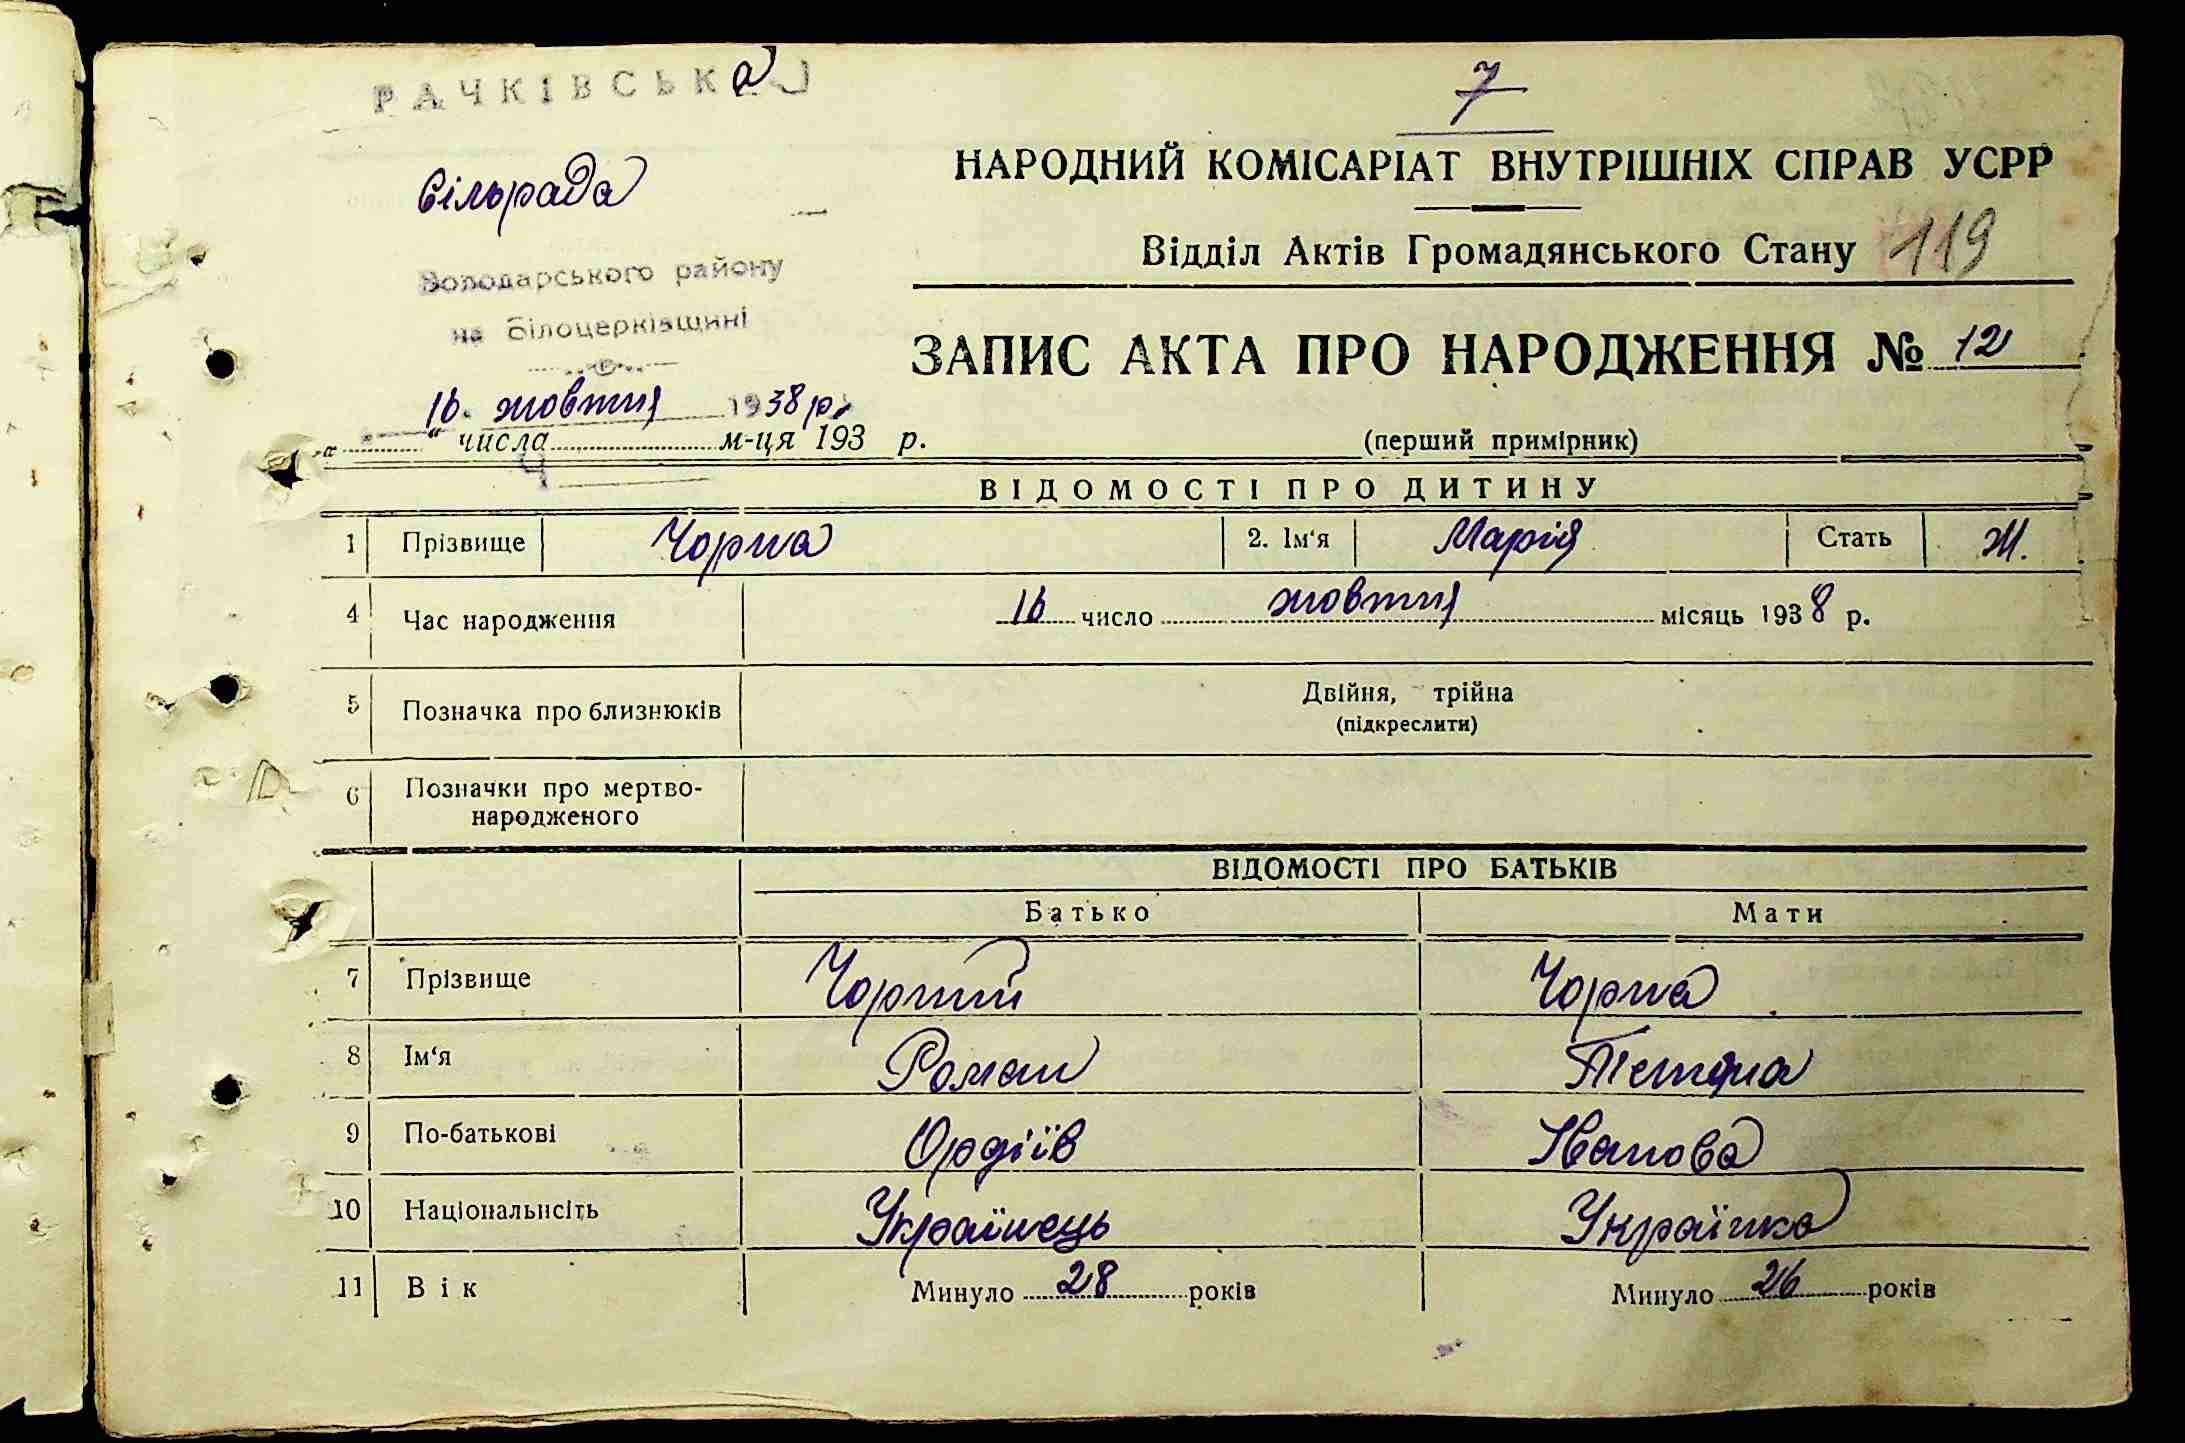 РАЧКІВСЬКа
7
сільрада
НАРОДНИЙ КОМІСАРІАТ ВНУТРІШНІХ СПРАВ УСРР
Відділ Актів Громадянського Стану 119
Володарського району
на Білоцерківщині
ЗАПИС АКТА ПРО НАРОДЖЕННЯ № 12
16 жовтня 1938 р.
„ “ числа м-ця 193 р.
(перший примірник)
ВІДОМОСТІ ПРО ДИТИНУ
1 Прізвище Чорна 2. Ім‘я Марія Стать Ж.
4 Час народження 16 число жовтня місяць 1938 р.
5 Позначка про близнюків Двійня, трійна
(підкреслити)
6 Позначки про мертво-
народженого
ВІДОМОСТІ ПРО БАТЬКІВ
Батько Мати
7 Прізвище Чорний Чорна
8 Ім‘я Роман Тетяна
9 По-батькові Ордіїв Іванова
10 Національнсіть Українець Українка
11 Вік Минуло 28 років Минуло 26 років